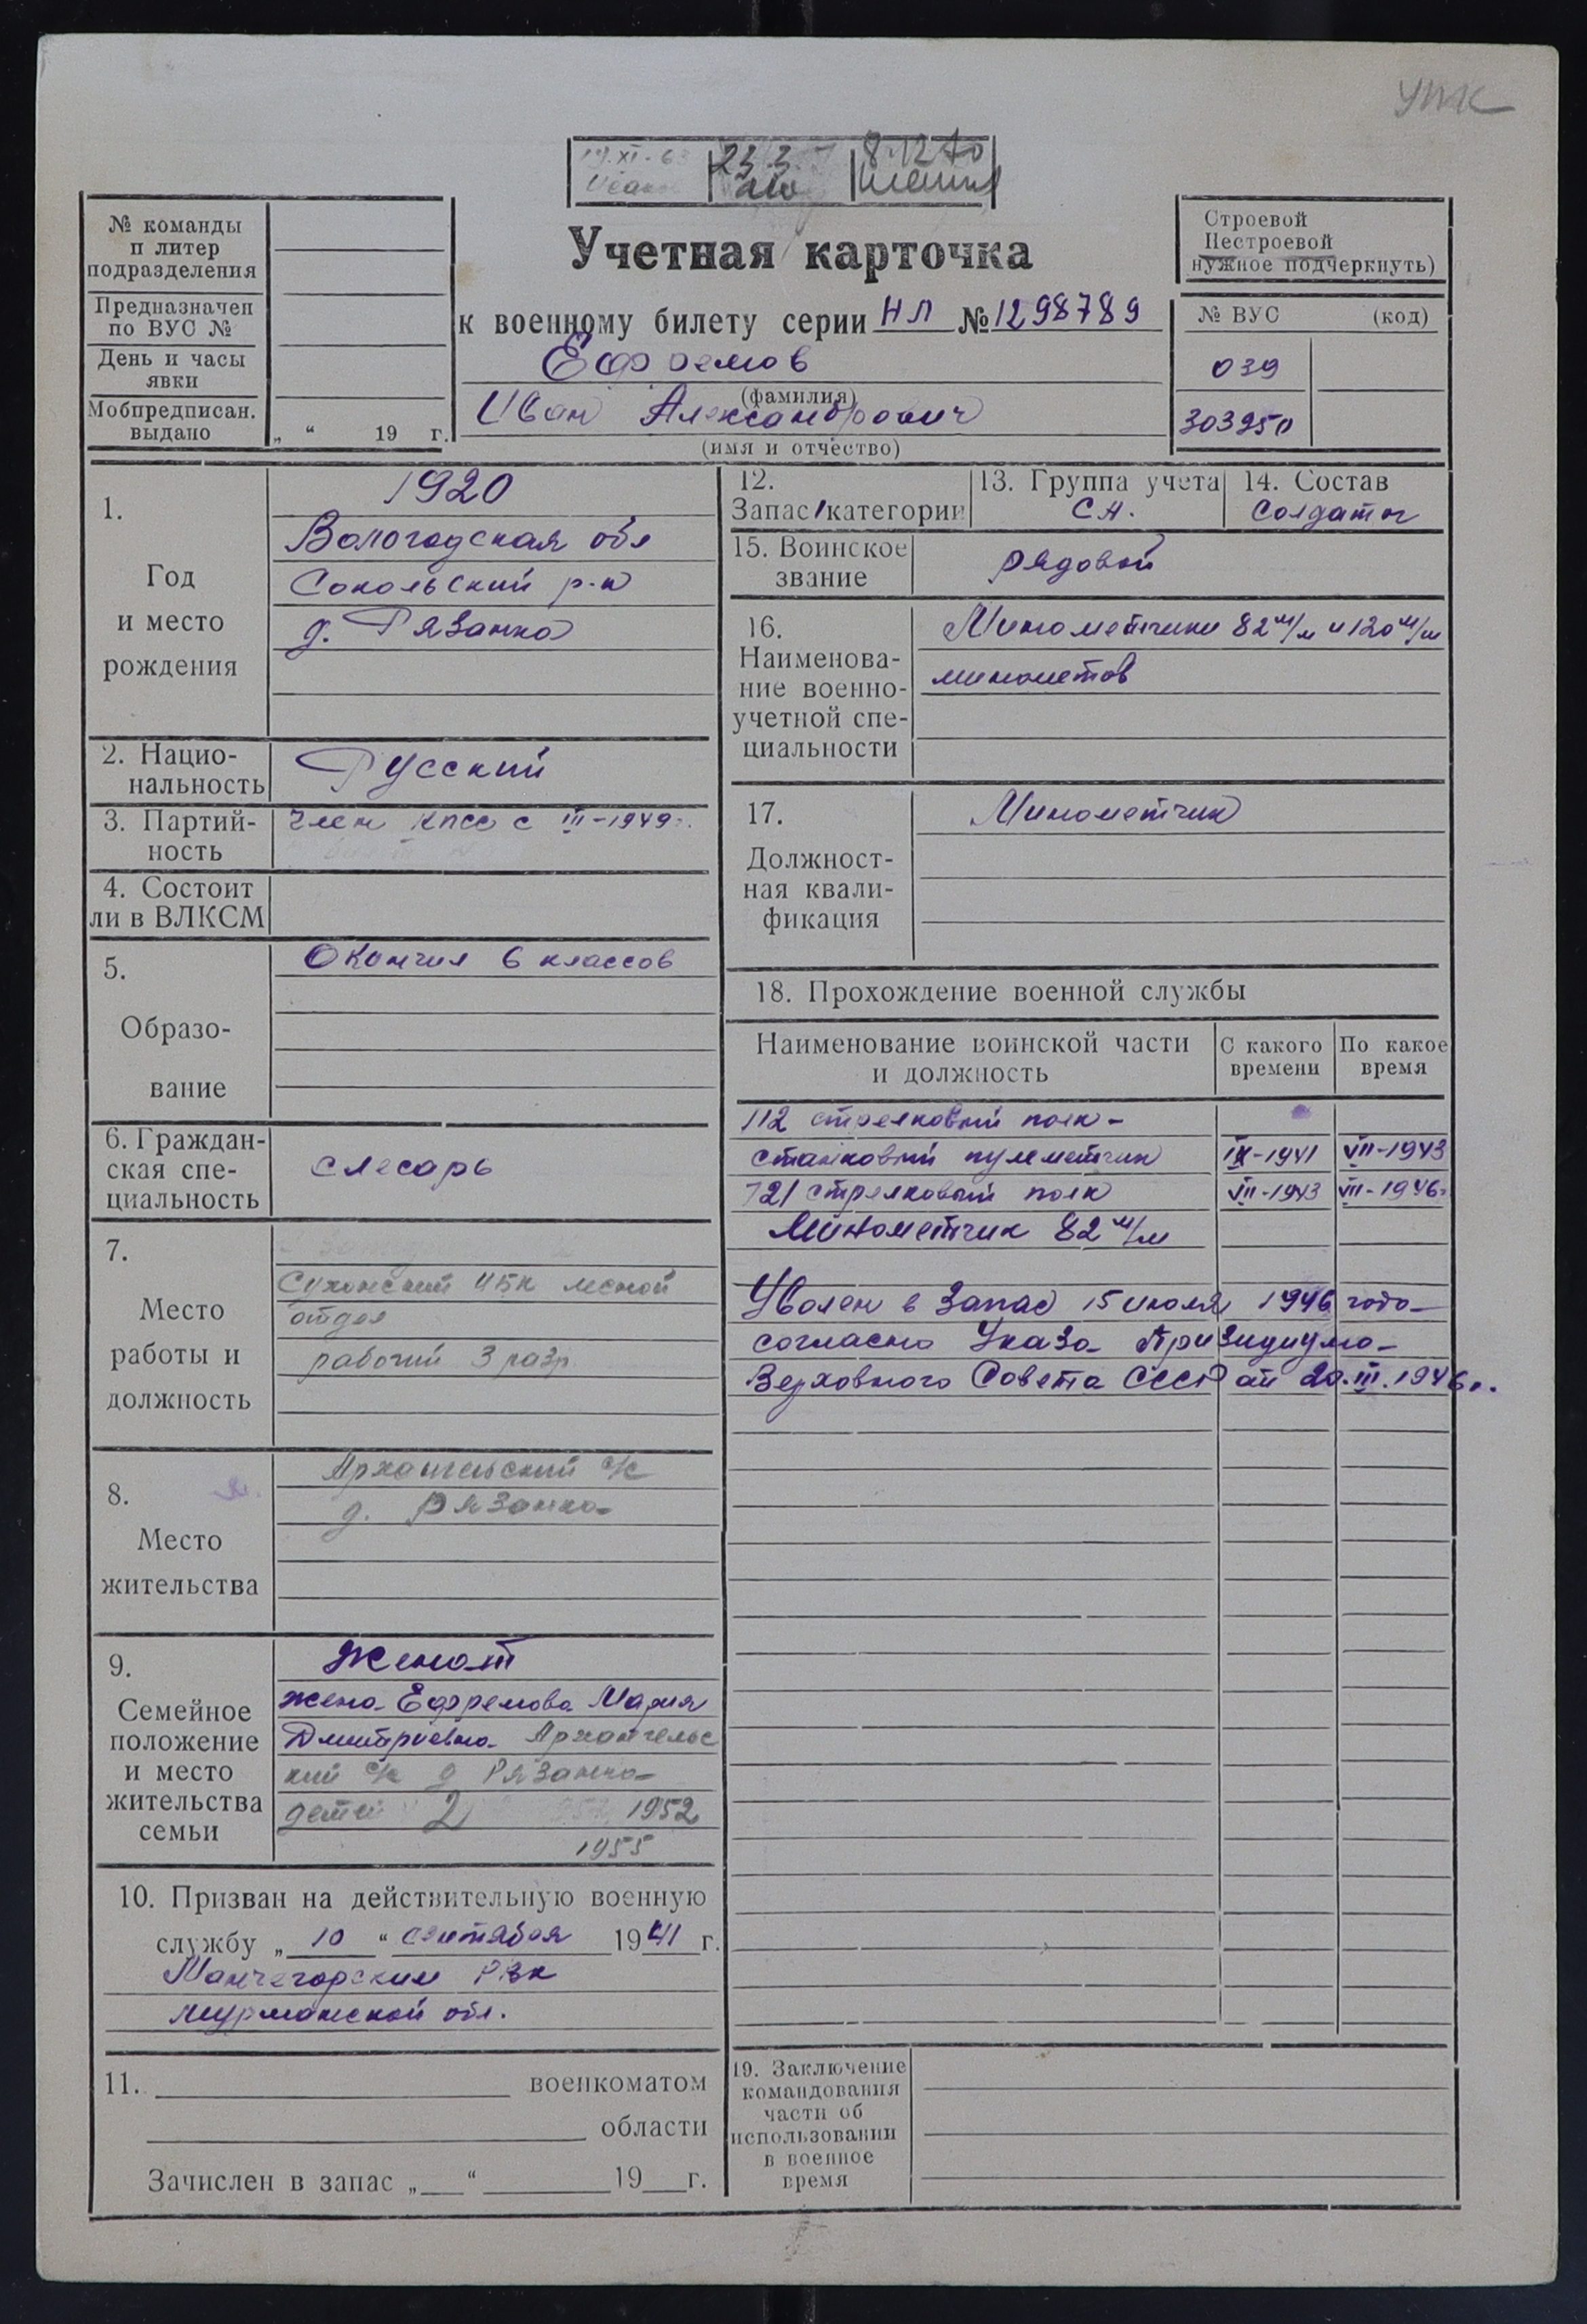 УПК
19.XI-6
23.3
8.12.70
№ команды
и литер
подразделения
Предназначен
по ВУС №
День и часы
явки
Мобпредписан.
выдано „ “ 19 г.
Учетная карточка
к военному билету серии НЛ № 1298789
Ефремов
(фамилия)
Иван Александрович
(имя и отчество)
Строевой
Нестроевой
нужное подчеркнуть)
№ ВУС (код)
039
303950
1.
Год
и место
рождения
1920
Вологодская обл
Сокольский р-н
д. Рязанка
2. Нацио-
нальность
Русский
3. Партий-
ность
Член КПСС с III-1949г.
4. Состоит
ли в ВЛКСМ
5.
Образо-
вание
Окончил 6 классов
6. Граждан-
ская спе-
циальность
слесарь
7.
Место
работы и
должность
Сухонский ЦБК лесной
отдел
рабочий 3 разр.
8.
Место
жительства
Архангельский с/с
д. Рязанка
9.
Семейное
положение
и место
жительства
семьи
Женат
жена Ефремова Мария
Дмитриевна Архангельс
кий с/с д Рязанка
детей 2 1952
1955
10. Призван на действительную военную
службу „ 10 “ сентября 1941 г.
Мончегорским РВК
Мурманской обл.
11. военкоматом
области
Зачислен в запас „ “ 19 г.
12.
Запас 1 категории
13. Группа учета
СА.
14. Состав
Солдаты
15. Воинское
звание
рядовой
16.
Наименова-
ние военно-
учетной спе-
циальности
Минометчики 82 м/м и 120 м/м
минометов
17.
Должност-
ная квали-
фикация
Минометчик
18. Прохождение военной службы
Наименование воинской части
и должность
С какого
времени
По какое
время
112 стрелковый полк -
станковый пулеметчик IX-1941 VII-1943
721 стрелковый полк VII-1943 VII-1946г
Минометчик 82 м/м
Уволен в запас 15 июля 1946 года
согласно Указа Призидиума
Верховного Совета СССР от 20.III.1946г.
19. Заключение
командования
части об
использовании
в военное
время